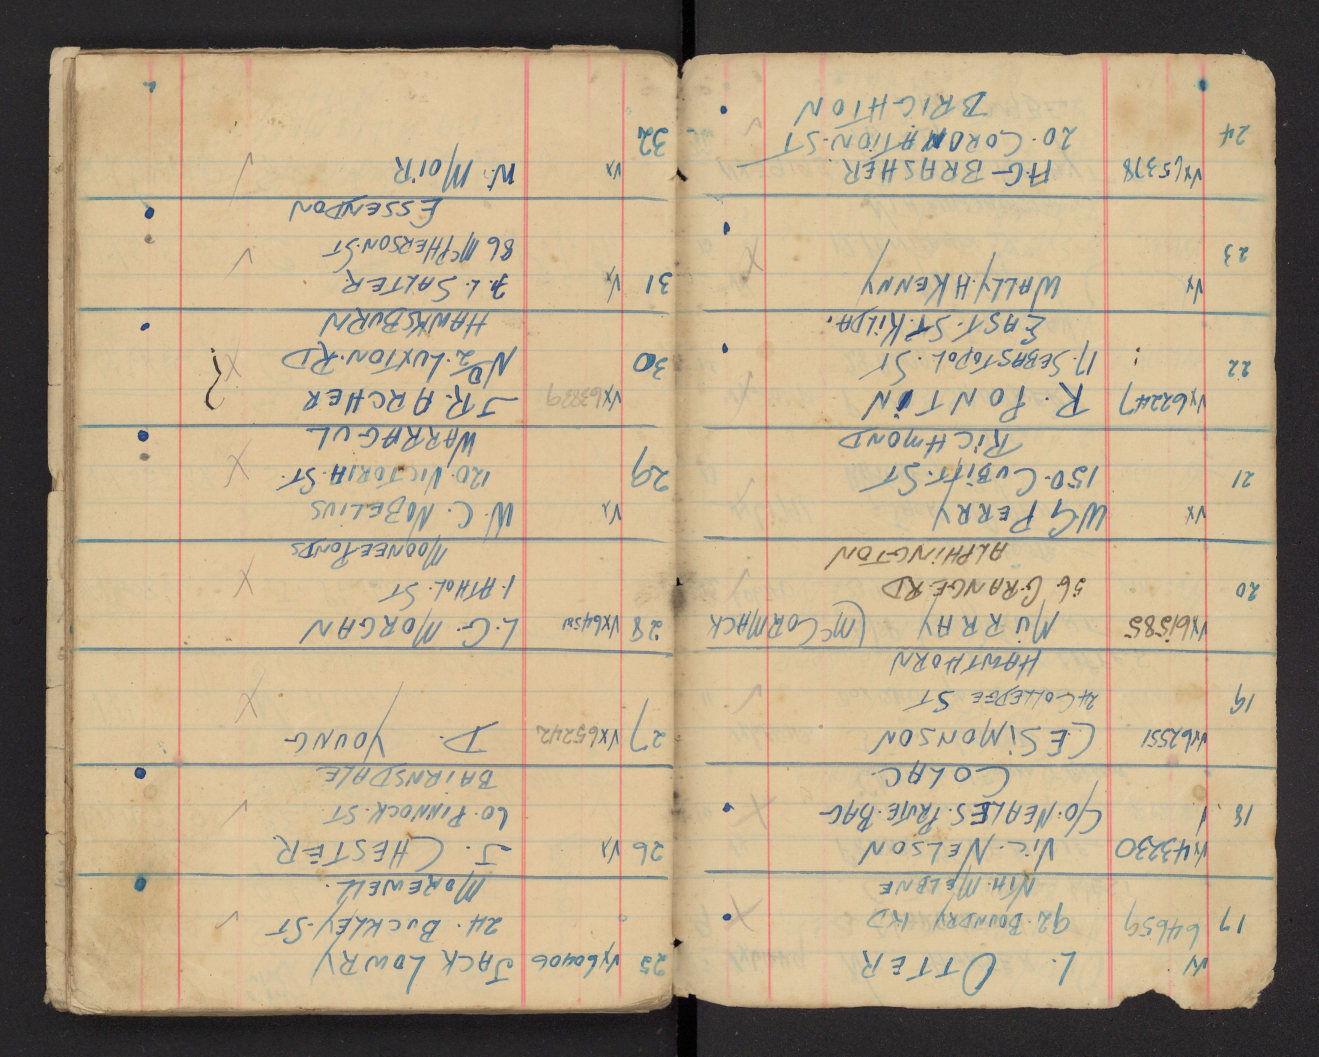 17 VX 64659 L. OTTER
92. BOUNDRY RD
NTH. MELBNE
18 VX43230 VIC. NELSON
C/O. NEALES. PRVTE. BAG
COLAC.
19 VX62551 C.E SIMONSON
24 COLLEDGE ST
HAWTHORN
20 VX61585 MURRAY (McCORMACK
56 GRANGE RD
ALPHINGTON
21 VX W G PERRY
150. CUBITT. ST
RICHMOND
22 VX62247 R. PONTIN
17. SEBASTOPOL. ST
EAST. ST. KILDA.
23 VX WALLY. H. KENNY
24 VX65378 H.G. BRASHER
20. CORONATION. ST
BRIGHTON
25 VX60406 JACK LOWRY
24. BUCKLEY. ST
MOREWELL.
26 VX J. CHESTER
60. PINNOCK. ST
BAIRNSDALE
27 VX65242 D. YOUNG
28 VX64581 L. G. MORGAN
1. ATHOL. ST
MOONEE PONDS
29 VX W. C. NOBELIUS
120. VICTORIA. ST.
WARRAGUL
30 VX63839 J. R. ARCHER
No 2. LUXTON. RD
HAWKSBURN
31 VX F. L. SALTER
86 McPHERSON. ST
ESSENDON
32 VX W. MOIR